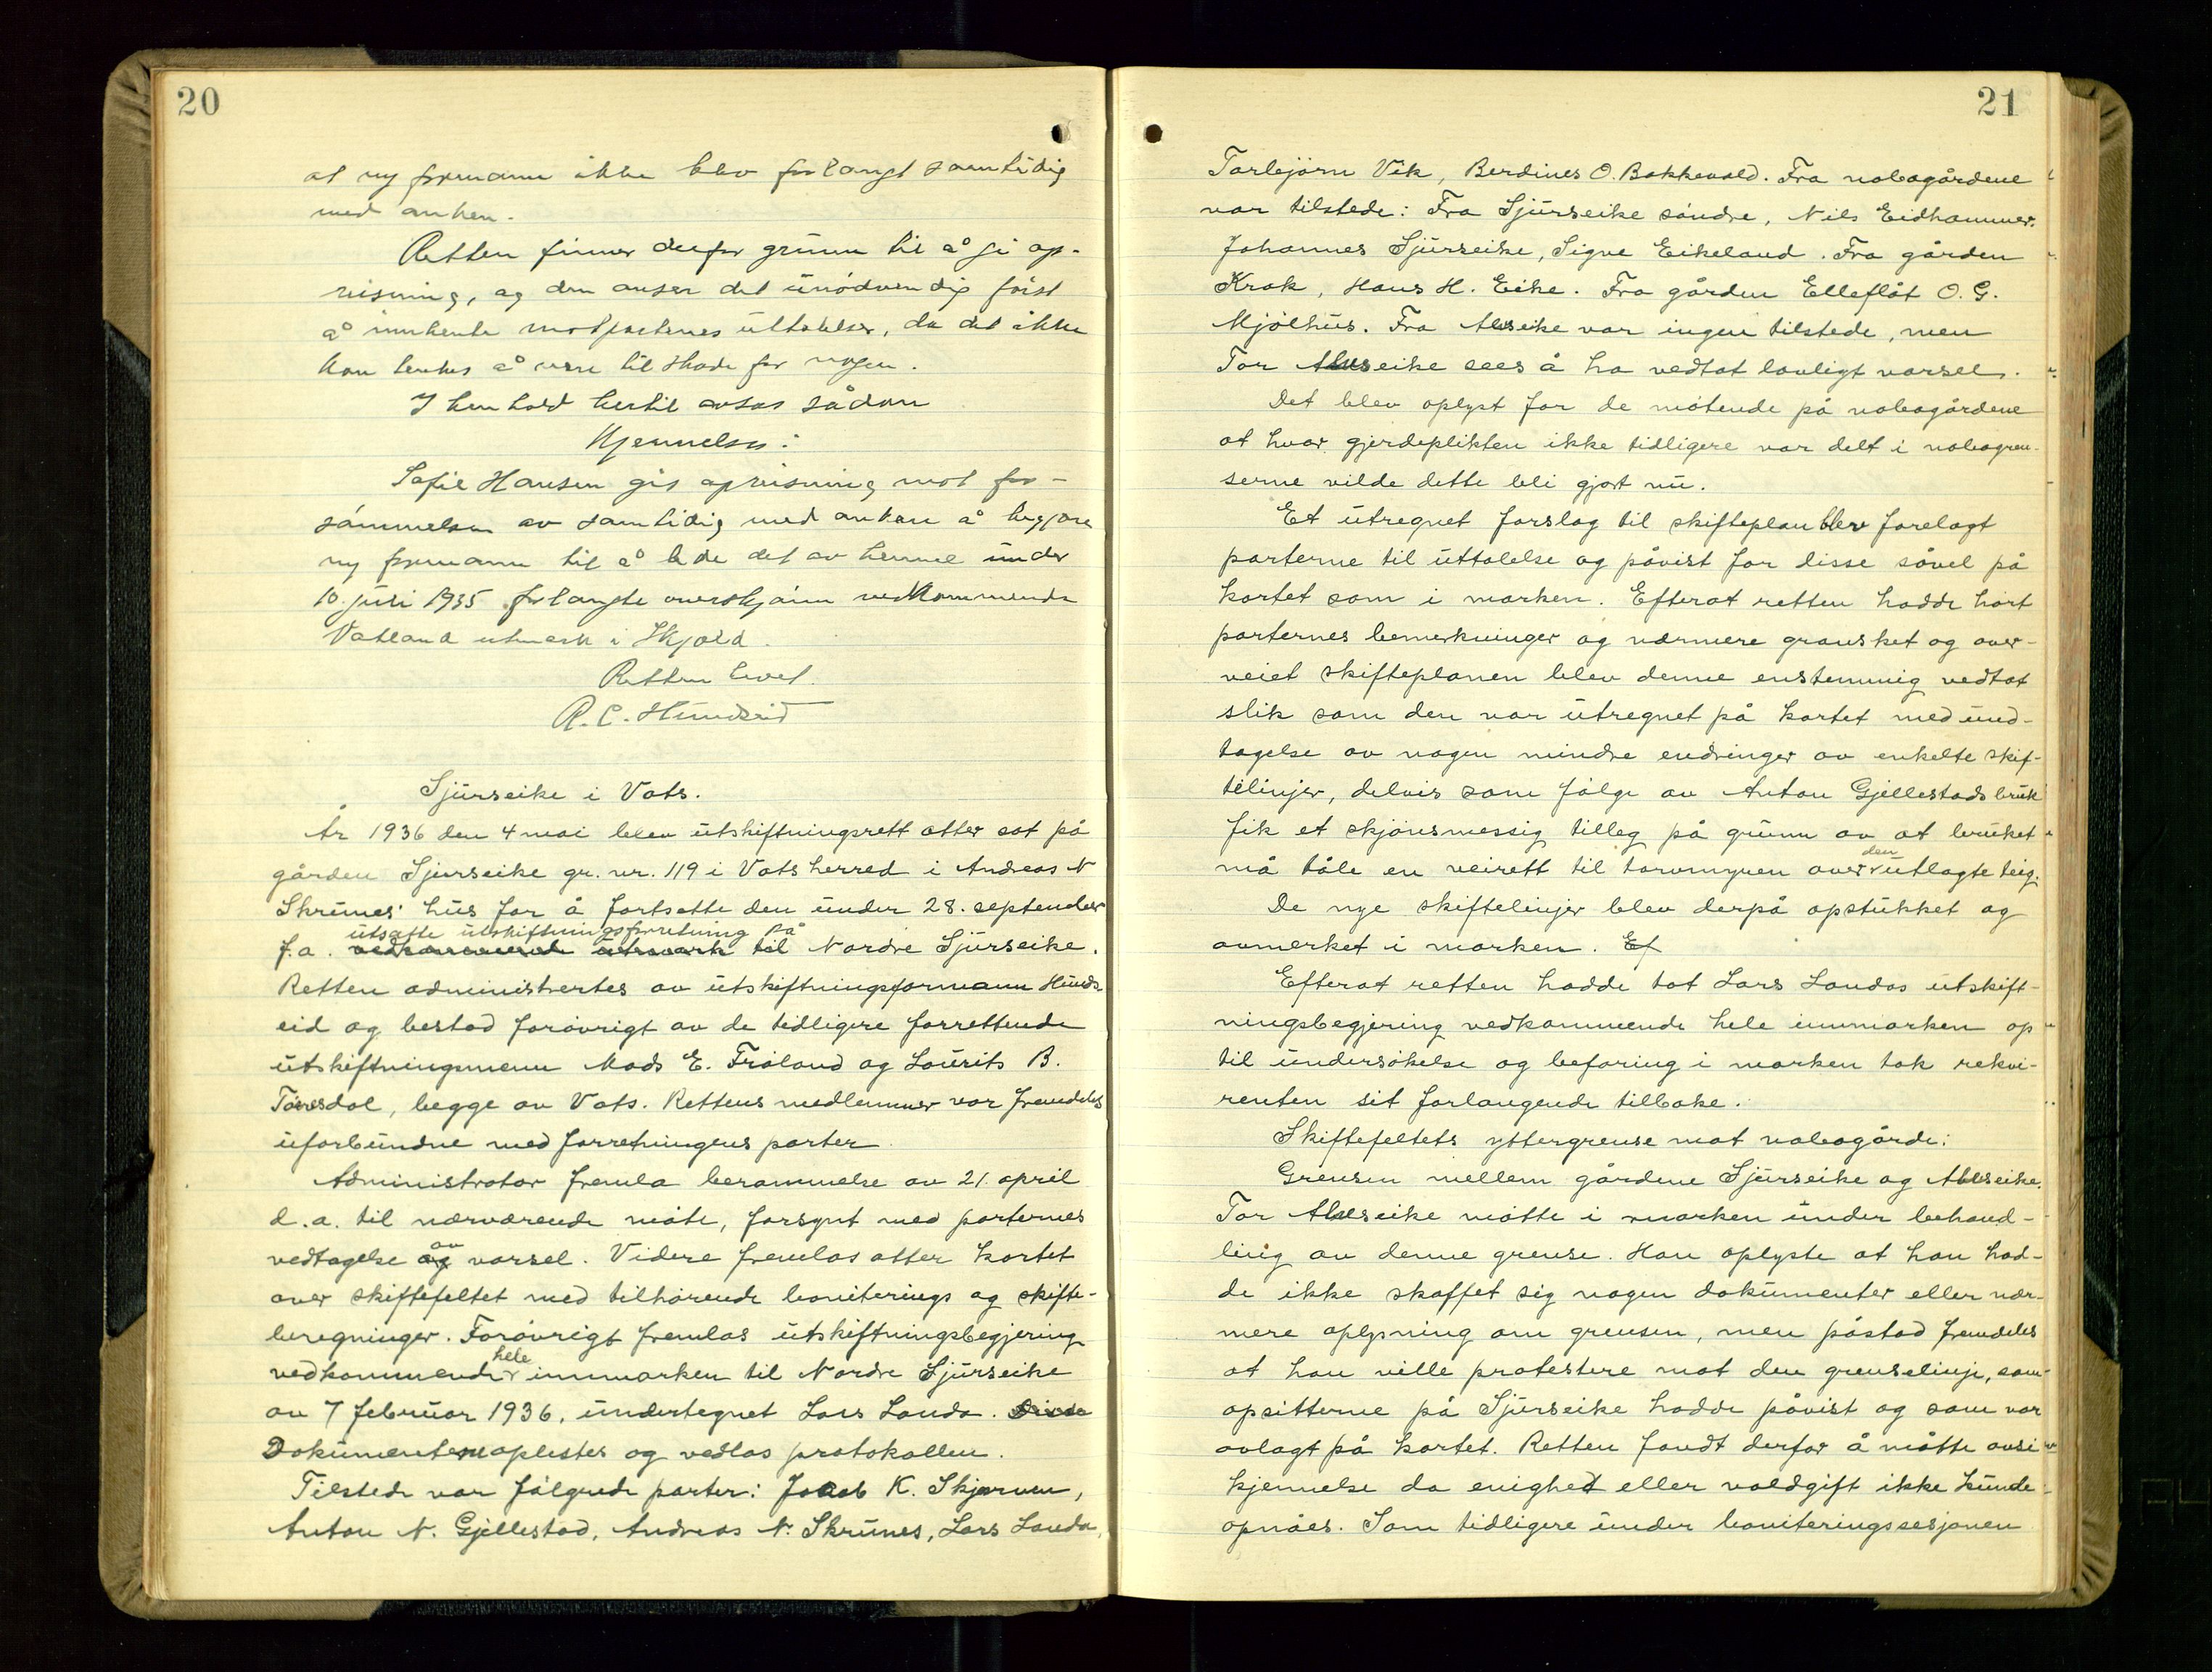 20
at ny formann ikke blev forlangt samtidig
med anken.
Retten finner derfor grunn til å gi op-
reisning, og den anser det unödvendig först
å innhente motpartenes uttalelser, da det ikke
kan tenkes å være til skade for nogen.
I henhold hertil avsas sådan
Kjennelse:
Sofie Hansen gis opreisning mot for-
sömmelsen av samtidig med anken å begjære
ny formann til å lede det av henne under
10. juli 1935 forlangte overskjönn vedkommende
Vatland utmark i Skjold.
Retten hevet.
R. C. Hundseid
Sjurseike i Vats.
År 1936 den 4 mai blev utskiftningsrett atter sat på
gården Sjurseike gr. nr. 119 i Vats herred i Andreas N
Skrunes' hus for å fortsette den under 28. september
utsatte utskiftningsforretning på
f.a. vedkommende utmark til Nordre Sjurseike.
Retten administrertes av utskiftningsformann Hunds-
eid og bestod forövrigt av de tidligere forrettende
utskiftningsmenn Mads E. Fröland og Lourits B.
Töresdal, begge av Vats. Rettens medlemmer var fremdeles
uforbundne med forretningens parter.
Administrator fremla berammelse av 21. april
d.a. til nærværende möte, forsynt med parternes
vedtagelse og av varsel. Videre fremlas atter kartet
over skiftefeltet med tilhörende boniterings og skifte-
beregninger. Forövrigt fremlas utskiftningsbegjering
vedkommende hele innmarken til Nordre Sjurseike
av 7 februar 1936, undertegnet Lars Landa.
Dokumentene oplestes og vedlas protokollen.
Tilstede var fölgende parter: Jacob K. Skjerven,
Anton N. Gjellestad, Andreas N. Skrunes, Lars Landa,
21
Torbjörn Vik, Berdines O. Bakkevold. Fra nabogårdene
var tilstede: Fra Sjurseike söndre, Nils Eidhammer,
Johannes Sjurseike, Signe Eikeland. Fra gården
Krak, Hans H. Eike. Fra gården Elleflåt O. G.
Mjölhus. Fra Alvseike var ingen tilstede, men
Tor Alvseike sees å ha vedtat lovligt varsel.
Det blev oplyst for de mötende på nabogårdene
at hvor gjerdeplikten ikke tidligere var delt i nabogren-
serne vilde dette bli gjort nu.
Et utregnet forslag til skifteplan blev forelagt
parterne til uttalelse og påvist for disse såvel på
kartet som i marken. Efterat retten hadde hört
parternes bemerkninger og nærmere gransket og over-
veiet skifteplanen blev denne enstemmig vedtat
slik som den var utregnet på kartet med und-
tagelse av nogen mindre endringer av enkelte skif-
telinjer, delvis som fölge av Anton Gjellestads bruk
fik et skjönsmessig tillegg på grunn av at bruket
må tåle en veirett til torvmyren over den utlagte teig.
De nye skiftelinjer blev derpå opstukket og
avmerket i marken. Ef
Efterat retten hadde tat Lars Landas utskift-
ningsbegjering vedkommende hele innmarken op
til undersökelse og befaring i marken tok rekvi-
renten sit forlangende tilbake.
Skiftefeltets yttergrense mot nabogårde:
Grensen mellem gårdene Sjurseike og Alvseike.
Tor Alvseike mötte i marken under behand-
ling av denne grense. Han oplyste at han had-
de ikke skaffet sig nogen dokumenter eller nær-
mere oplysning om grensen, men påstod fremdeles
at han ville protestere mot den grenselinje, som
opsitterne på Sjurseike hadde påvist og som var
avlagt på kartet. Retten fandt derfor å måtte avsi
kjennelse da enighed eller voldgift ikke kunde
opnåes. Som tidligere under boniteringssesjonen